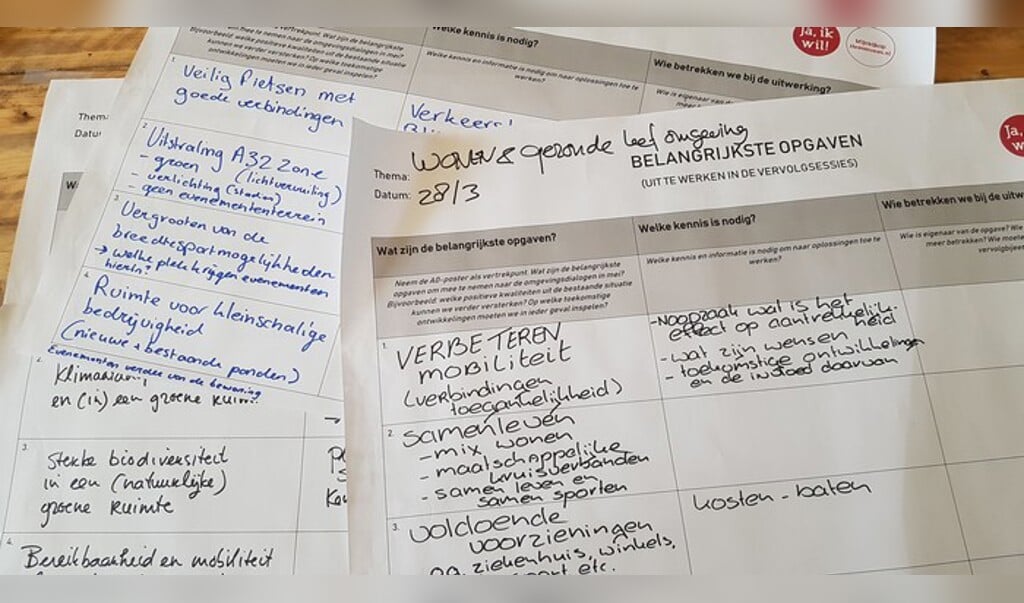 Welke kennis is nodig?
Ja, ik
wil!
vertrekpunt. Wat zijn de belangrijkste
Bijvoorbeeld: welke positieve kwaliteiten uit de bestaande situatie
kunnen we verder versterken? Op welke toekomstige
ontwikkelingen moeten we in ieder geval inspelen?
Welke kennis en informatie is nodig om naar oplossingen toe te
werken?
Wie betrekken we bij de uitwerking?
1.
Veilig Fietsen met
goede verbindingen
Verkeers
2.
Uitstraling A32 Zone
- groen (lichtvervuiling)
- verlichting (stadion)
- geen evenemententerrein
3.
Vergroten van de
breedtesportmogelijkheden
→ welke plek krijgen evenementen
hierin?
4.
Ruimte voor kleinschalige
bedrijvigheid
(nieuwe + bestaande panden)
Evenementen verder van de bewoning
Thema
Datu
en (in) een groene ruim
3.
Sterke biodiversiteit
in een (natuurlijke)
groene ruimte
4.
Bereikbaarheid en mobiliteit
Thema: WONEN & gezonde leefomgeving
Datum: 28/3
BELANGRIJKSTE OPGAVEN
(UIT TE WERKEN IN DE VERVOLGSESSIES)
Ja,
Wat zijn de belangrijkste opgaven?
Welke kennis is nodig?
Wie betrekken we bij de uitw
Neem de A0-poster als vertrekpunt. Wat zijn de belangrijkste
opgaven om mee te nemen naar de omgevingsdialogen in mei?
Bijvoorbeeld: welke positieve kwaliteiten uit de bestaande situatie
kunnen we verder versterken? Op welke toekomstige
ontwikkelingen moeten we in ieder geval inspelen?
Welke kennis en informatie is nodig om naar oplossingen toe te
werken?
Wie is eigenaar van de opgave? Wie
meer betrekken? Hoe moete
vervolgbijeen
1.
VERBETEREN
mobiliteit
(verbindingen
toegankelijkheid)
- NOODZAAK wat is het
effect op aantrekkelijk-
heid
- wat zijn wensen
- toekomstige ontwikkelingen
en de invloed daarvan
2.
samenleven
- mix wonen
- maatschappelijke
kruisverbanden
- samen leven en
samen sporten
3.
voldoende
voorzieningen
oa. ziekenhuis, winkels,
sport etc.
kosten - baten